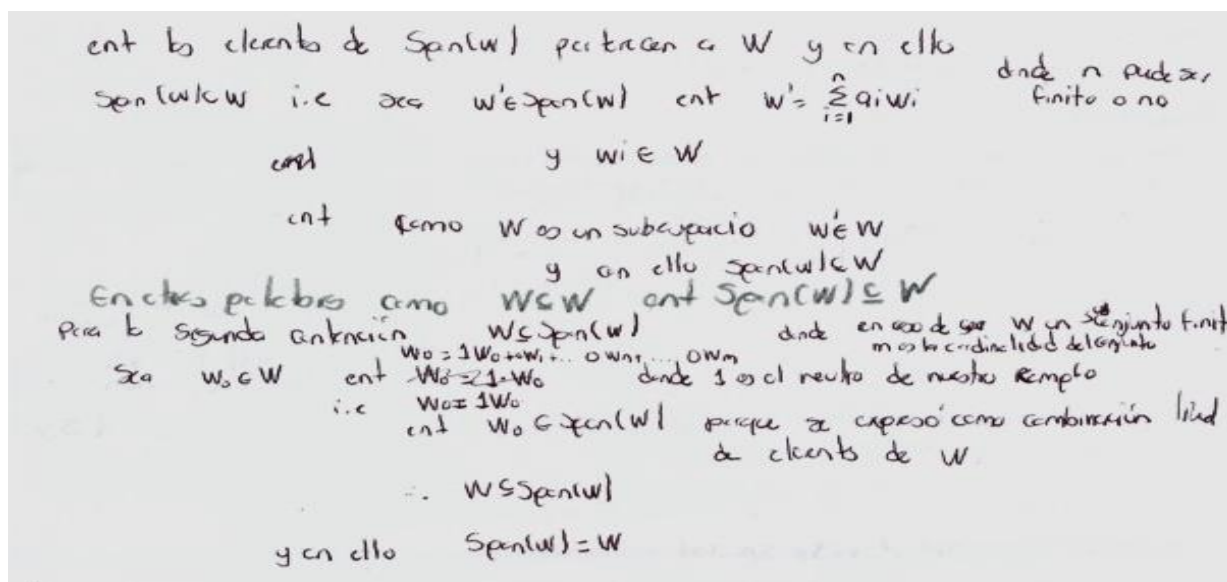 ent los elementos de Span(W) pertenecen a W y en ello
Span(W)⊂W i.e sea w'∈Span(W) ent w'= Σ aiwi donde n puede ser finito o no
i=1 n
y wi ∈ W
ent como W es un subespacio w'∈W
y en ello Span(W)⊂W
En otras palabras como W⊆W ent Span(W)⊆W
Para la segunda contención W⊆Span(W) donde en caso de ser W un conjunto finito
m es la cardinalidad del conjunto
W0 = 1W0+0W1+... 0Wn, ... 0Wm
Sea W0∈W ent donde 1 es el neutro de nuestro
i.e W0=1W0
ent W0∈Span(W) porque se expresó como combinación lineal
de elementos de W
∴ W⊆Span(W)
y en ello Span(W)=W